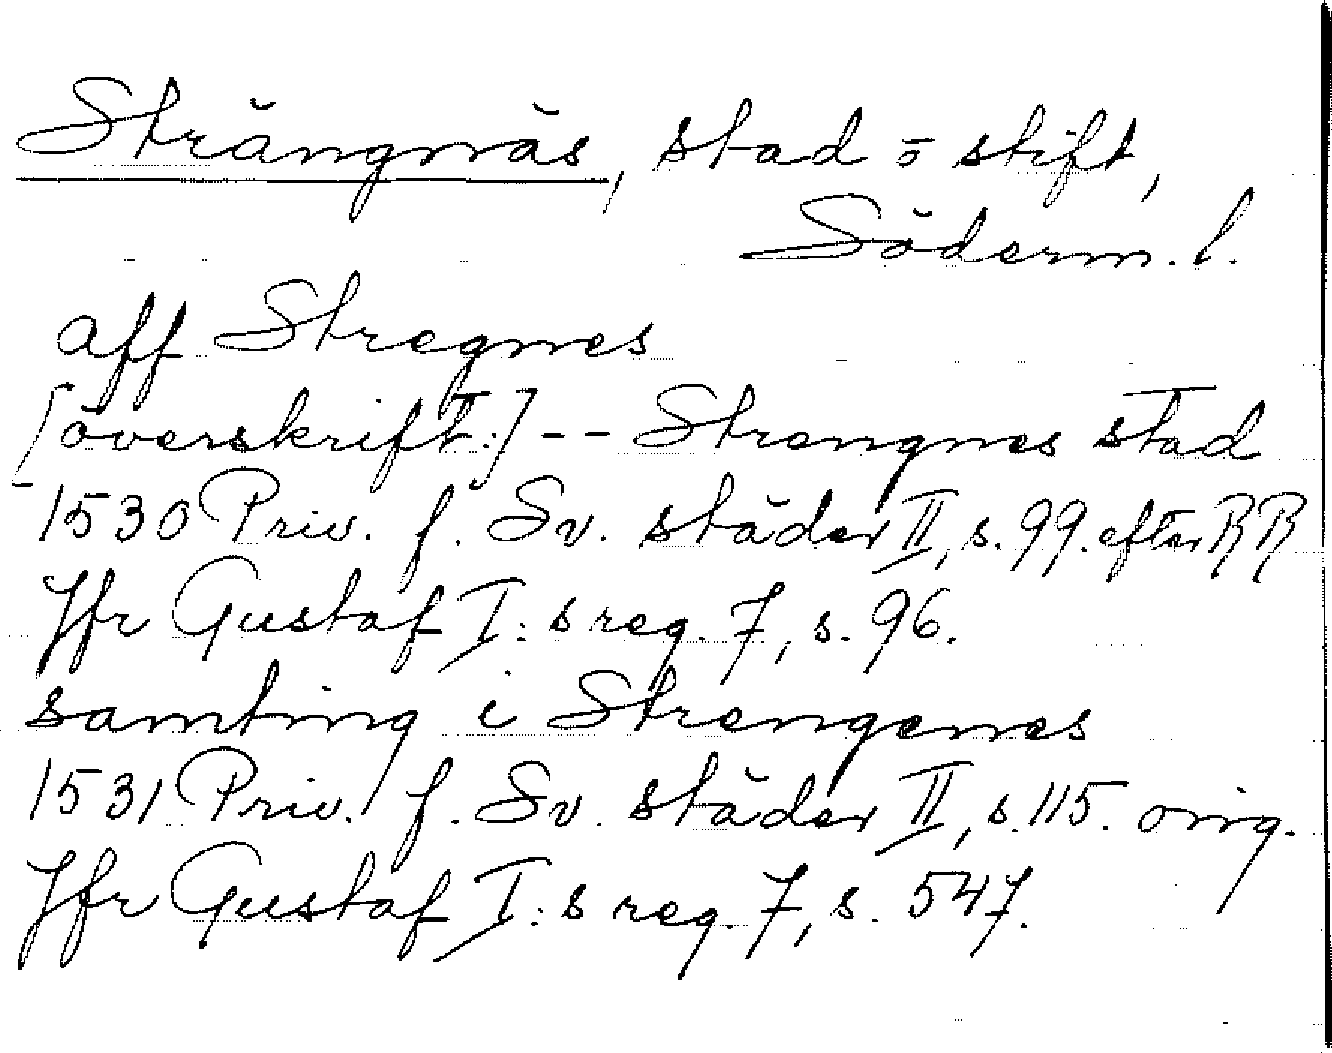 Strängnäs, stad o stift,
Söderm. l.
aff Stregnes
[överskift:] -- Strengnes stad
1530 Priv. f. Sv. städer II, s. 99. efter RR
Jfr Gustaf I: s reg. 7, s. 96.
samting i Strengenes
1531 Priv. f. Sv. städer II, s. 115. orig.
Jfr Gustaf I: s reg 7, s. 547.